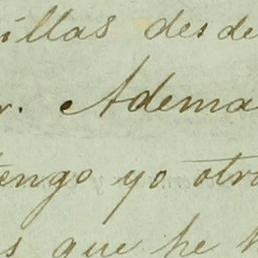 illas desde
r. Adema
tengo yo otra
s que he